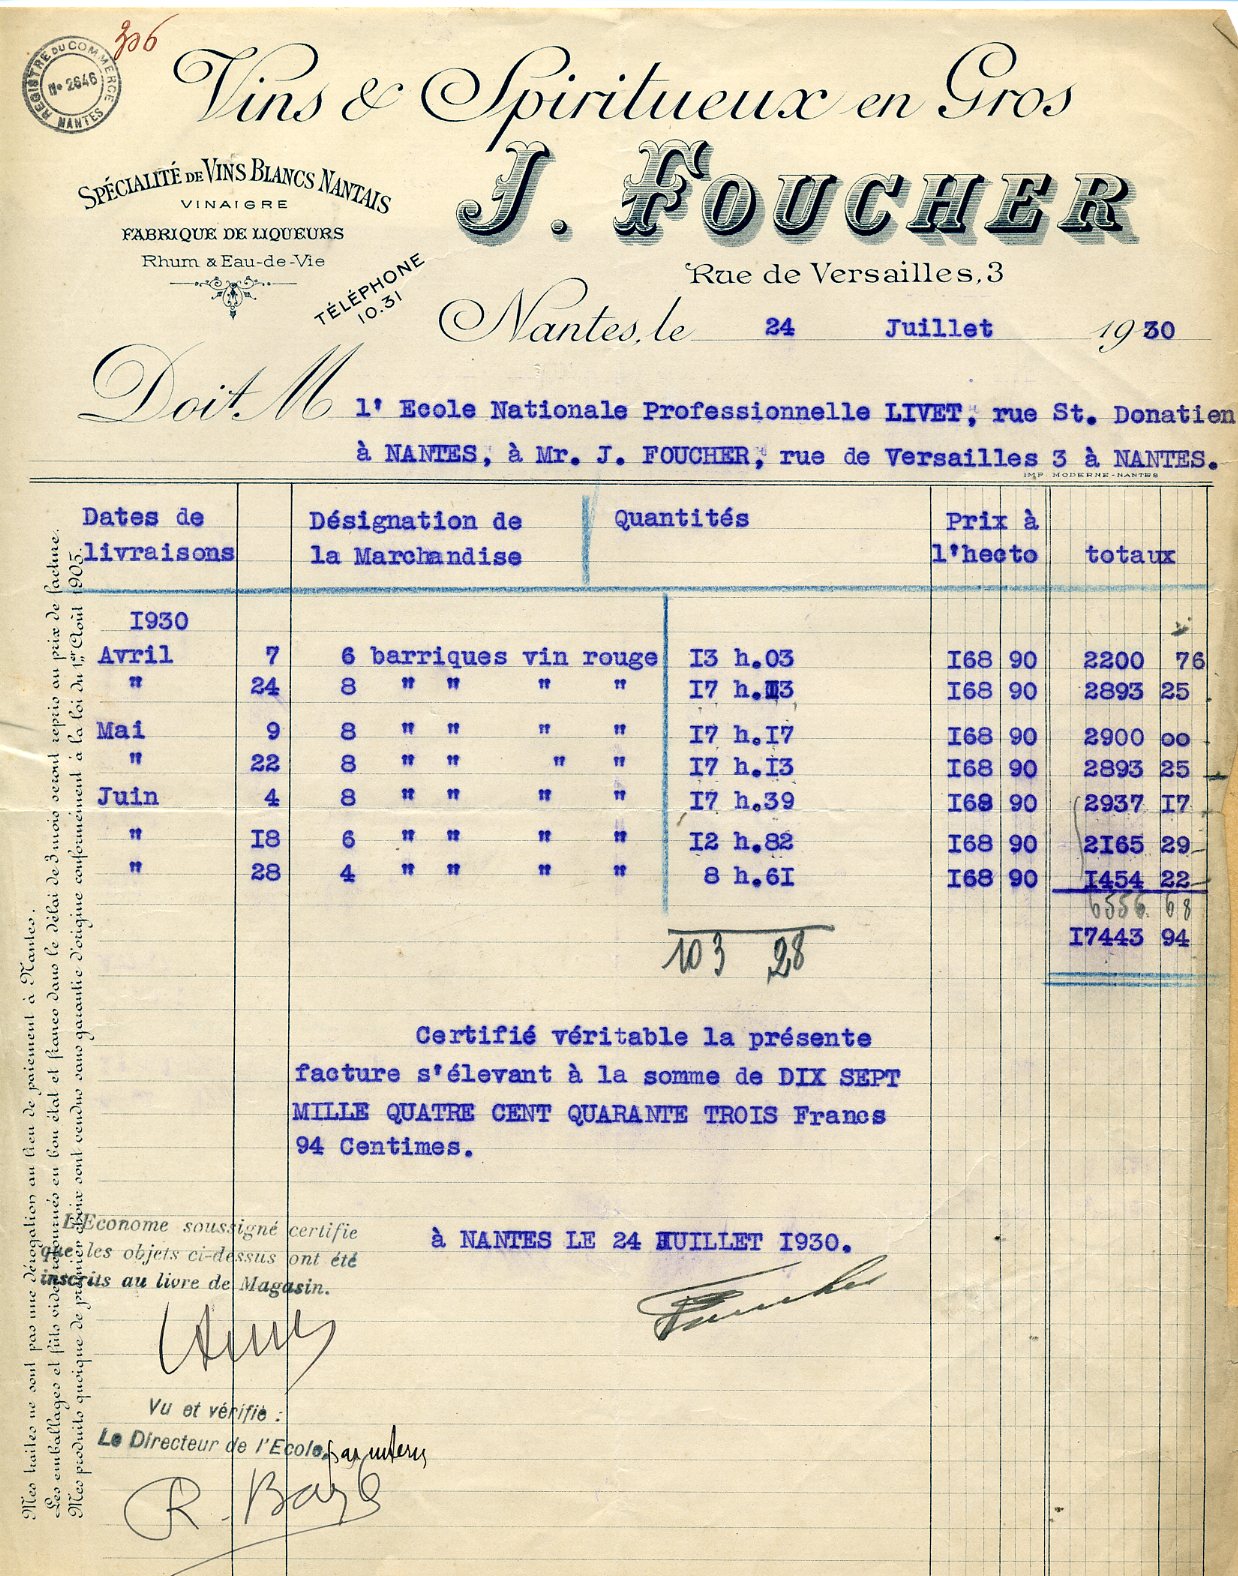 306
REGISTRE DU COMMERCE
No 2646
NANTES
Vins & Spiritueux en Gros
J. FOUCHER
Rue de Versailles, 3
SPÉCIALITÉ DE VINS BLANCS NANTAIS
VINAIGRE
FABRIQUE DE LIQUEURS
Rhum & Eau-de-Vie
TÉLÉPHONE
10.31
Nantes, le 24 Juillet 1930
Doit M l' Ecole Nationale Professionnelle LIVET, rue St. Donatien
à NANTES, à Mr. J. FOUCHER, rue de Versailles 3 à NANTES.
IMP MODERNE-NANTES
Dates de Désignation de Quantités Prix à
livraisons la Marchandise l'hecto totaux
I930
Avril 7 6 barriques vin rouge I3 h.03 I68 90 2200 76
" 24 8 " " " " I7 h.I3 I68 90 2893 25
Mai 9 8 " " " " I7 h.I7 I68 90 2900 00
" 22 8 " " " " I7 h.I3 I68 90 2893 25
Juin 4 8 " " " " I7 h.39 I68 90 2937 I7
" I8 6 " " " " I2 h.82 I68 90 2I65 29
" 28 4 " " " " 8 h.6I I68 90 I454 22
6556 68
103 28 I7443 94
Certifié véritable la présente
facture s'élevant à la somme de DIX SEPT
MILLE QUATRE CENT QUARANTE TROIS Francs
94 Centimes.
à NANTES LE 24 JUILLET I930.
Foucher
L'Econome soussigné certifie
que les objets ci-dessus ont été
inscrits au livre de Magasin.
Vu et vérifié :
Le Directeur de l'Ecole, par interim
Mes traites ne sont pas une dérogation au lieu de paiement à Nantes.
Les emballages et fûts vides retournés en bon état et franco dans le délai de 3 mois seront repris au prix de facture.
Mes produits quoique de premier choix sont vendus sans garantie d'origine conformément à la loi du 1er Août 1905.